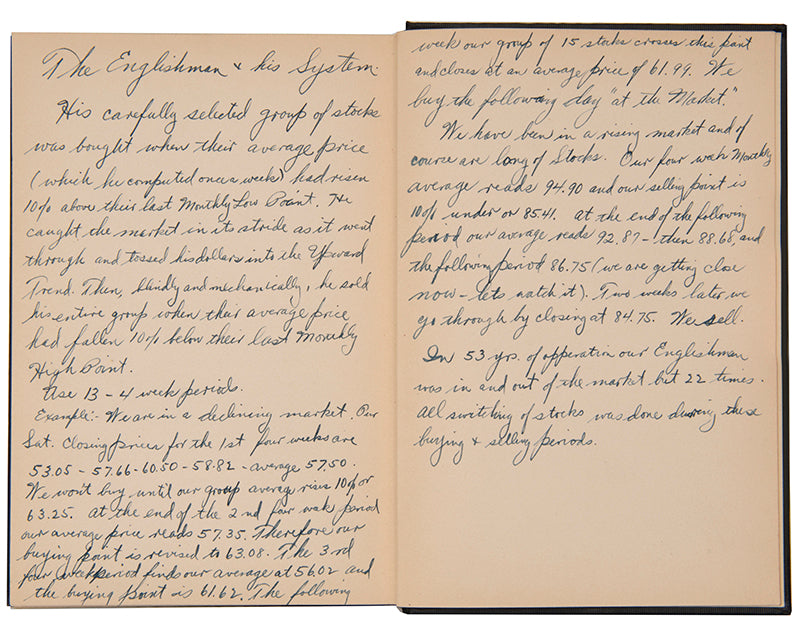 The Englishman & his System.
His carefully selected group of stocks
was bought when their average price
(which he computed once a week) had risen
10% above their last Monthly Low Point. He
caught the market in its stride as it went
through and tossed his dollars into the Upward
Trend. Then, blindly and mechanically, he sold
his entire group when their average price
had fallen 10% below their last Monthly
High Point.
Use 13 - 4 week periods.
Example:- We are in a declining market. Our
Sat. closing prices for the 1st four weeks are
53.05 - 57.66 - 60.50 - 58.82 - average 57.50.
We won't buy until our group average rises 10% or
63.25. At the end of the 2nd four week period
our average price reads 57.35. Therefore our
buying point is revised to 63.08. The 3rd
four week period finds our average at 56.02 and
the buying point is 61.62. The following
week our group of 15 stocks crosses this point
and closes at an average price of 61.99. We
buy the following day "at the Market."
We have been in a rising market and of
course are long of Stocks. Our four week Monthly
average reads 94.90 and our selling point is
10% under or 85.41. At the end of the following
period our average reads 92.87 - then 88.68, and
the following period 86.75 (we are getting close
now - lets watch it). Two weeks later we
go through by closing at 84.75. We sell.
In 53 yrs. of opperation our Englishman
was in and out of the market but 22 times.
All switching of stocks was done during these
buying & selling periods.